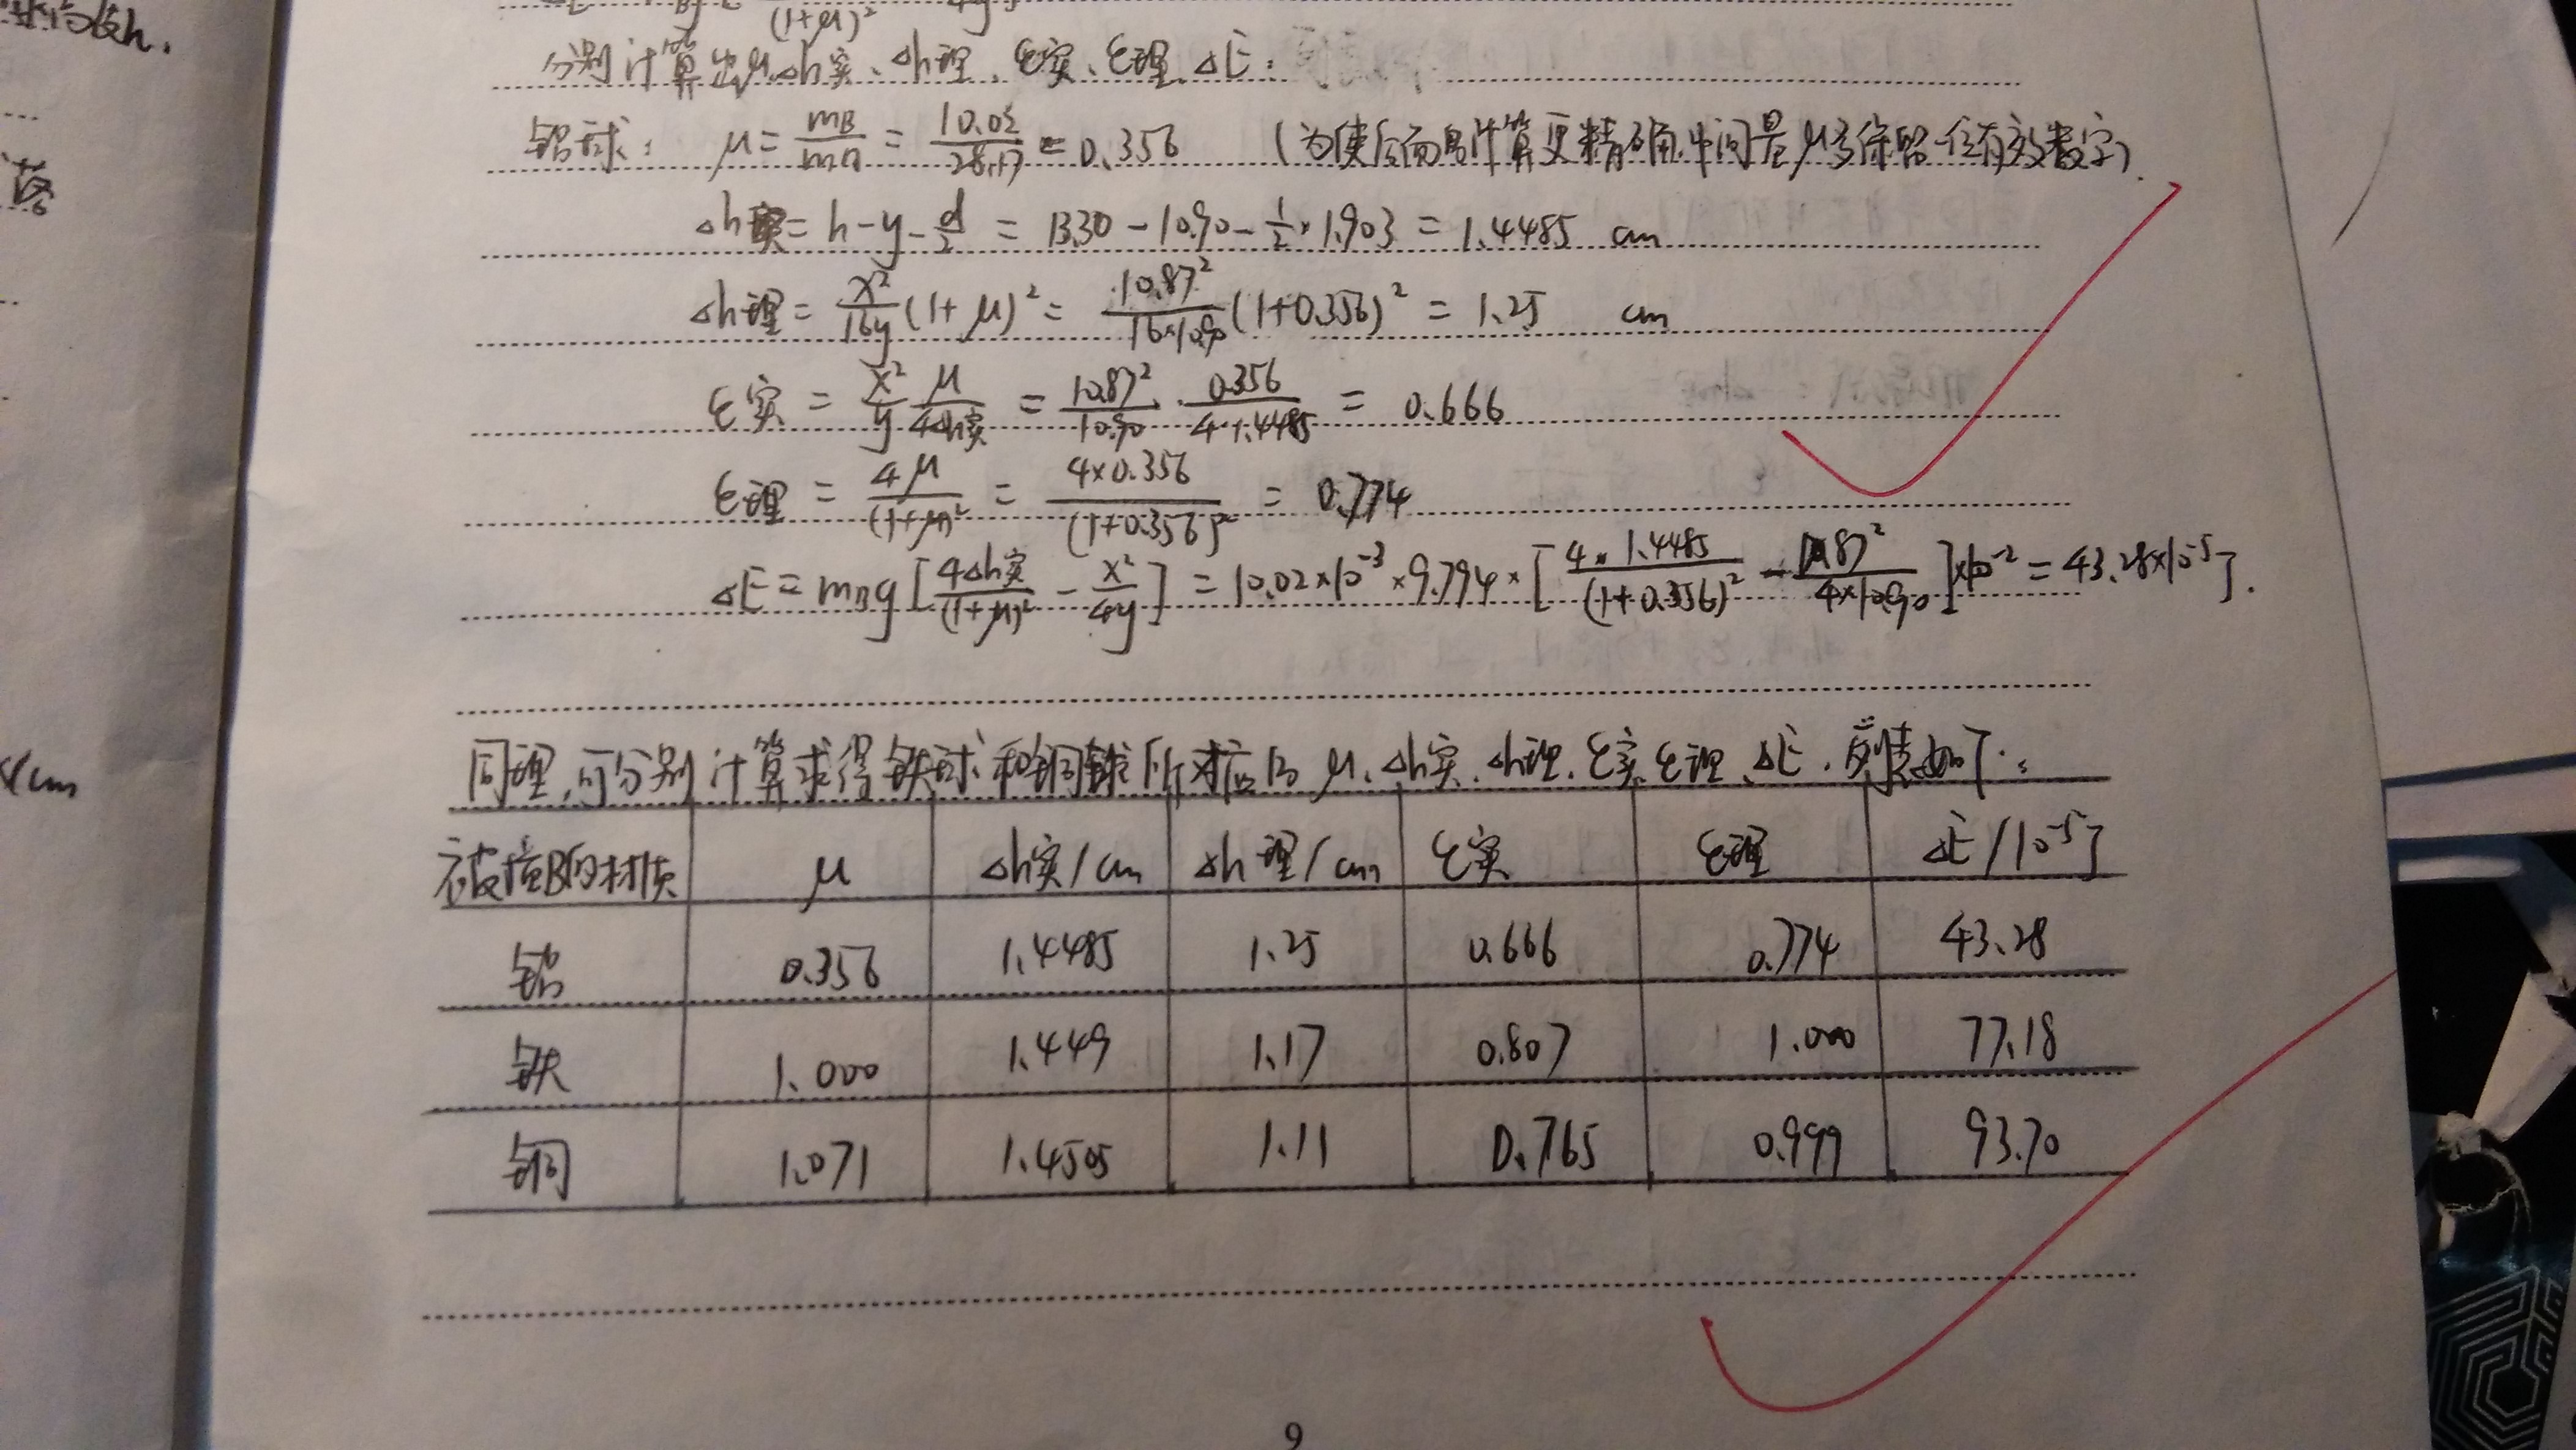 球向故h.
落
(1+μ)²
分别计算出μ、Δh实、Δh理、ε实、ε理、ΔE:
铝球: μ = mB/mA = 10.02/28.17 = 0.356 (为使后面的计算更精确,中间量μ多保留一位有效数字).
Δh实 = h - y - d/2 = 13.30 - 10.90 - 1/2 × 1.903 = 1.4485 cm
Δh理 = x²/16y (1+μ)² = 10.87²/16×10.90 (1+0.356)² = 1.25 cm
ε实 = x²/y μ/4Δh实 = 10.87²/10.90 · 0.356/4·1.4485 = 0.666
ε理 = 4μ/(1+μ)² = 4×0.356/(1+0.356)² = 0.774
ΔE = mBg[4Δh实/(1+μ)² - x²/4y] = 10.02×10⁻³×9.794×[4×1.4485/(1+0.356)² - 10.87²/4×10.90]×10⁻² = 43.28×10⁻⁵J.
同理,可分别计算求得铁球和铜球所对应的μ、Δh实、Δh理、ε实、ε理、ΔE,列表如下:
被撞B的材质 μ Δh实/cm Δh理/cm ε实 ε理 ΔE/10⁻⁵J
铝 0.356 1.4485 1.25 0.666 0.774 43.28
铁 1.000 1.449 1.17 0.807 1.000 77.18
铜 1.071 1.4505 1.11 0.765 0.999 93.70
cm
9